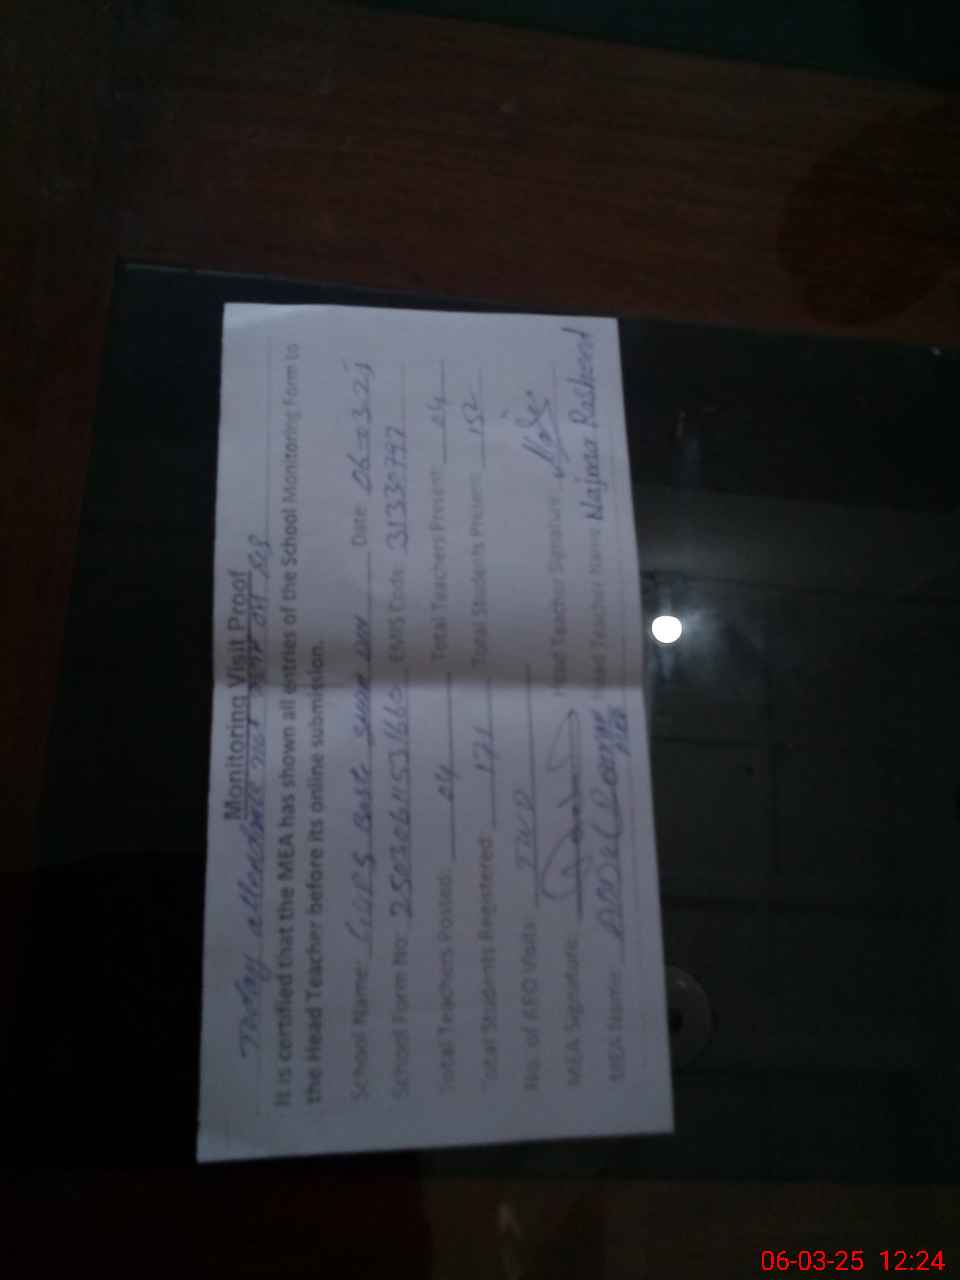 Monitoring Visit Proof
Today attendance not
It is certified that the MEA has shown all entries of the School Monitoring Form to
the Head Teacher before its online submission.
School Name: GGPS Basti Date 06-03-25
School Form No: EMIS Code: 31330797
Total Teachers Posted: 04 Total Teachers Present: 04
Total Students Registered: 171 Total Students Present: 152
No. of AEO Visits:
MEA Signature: Head Teacher Signature:
MEA Name: Head Teacher Name Najma Rasheed
MEA
06-03-25 12:24